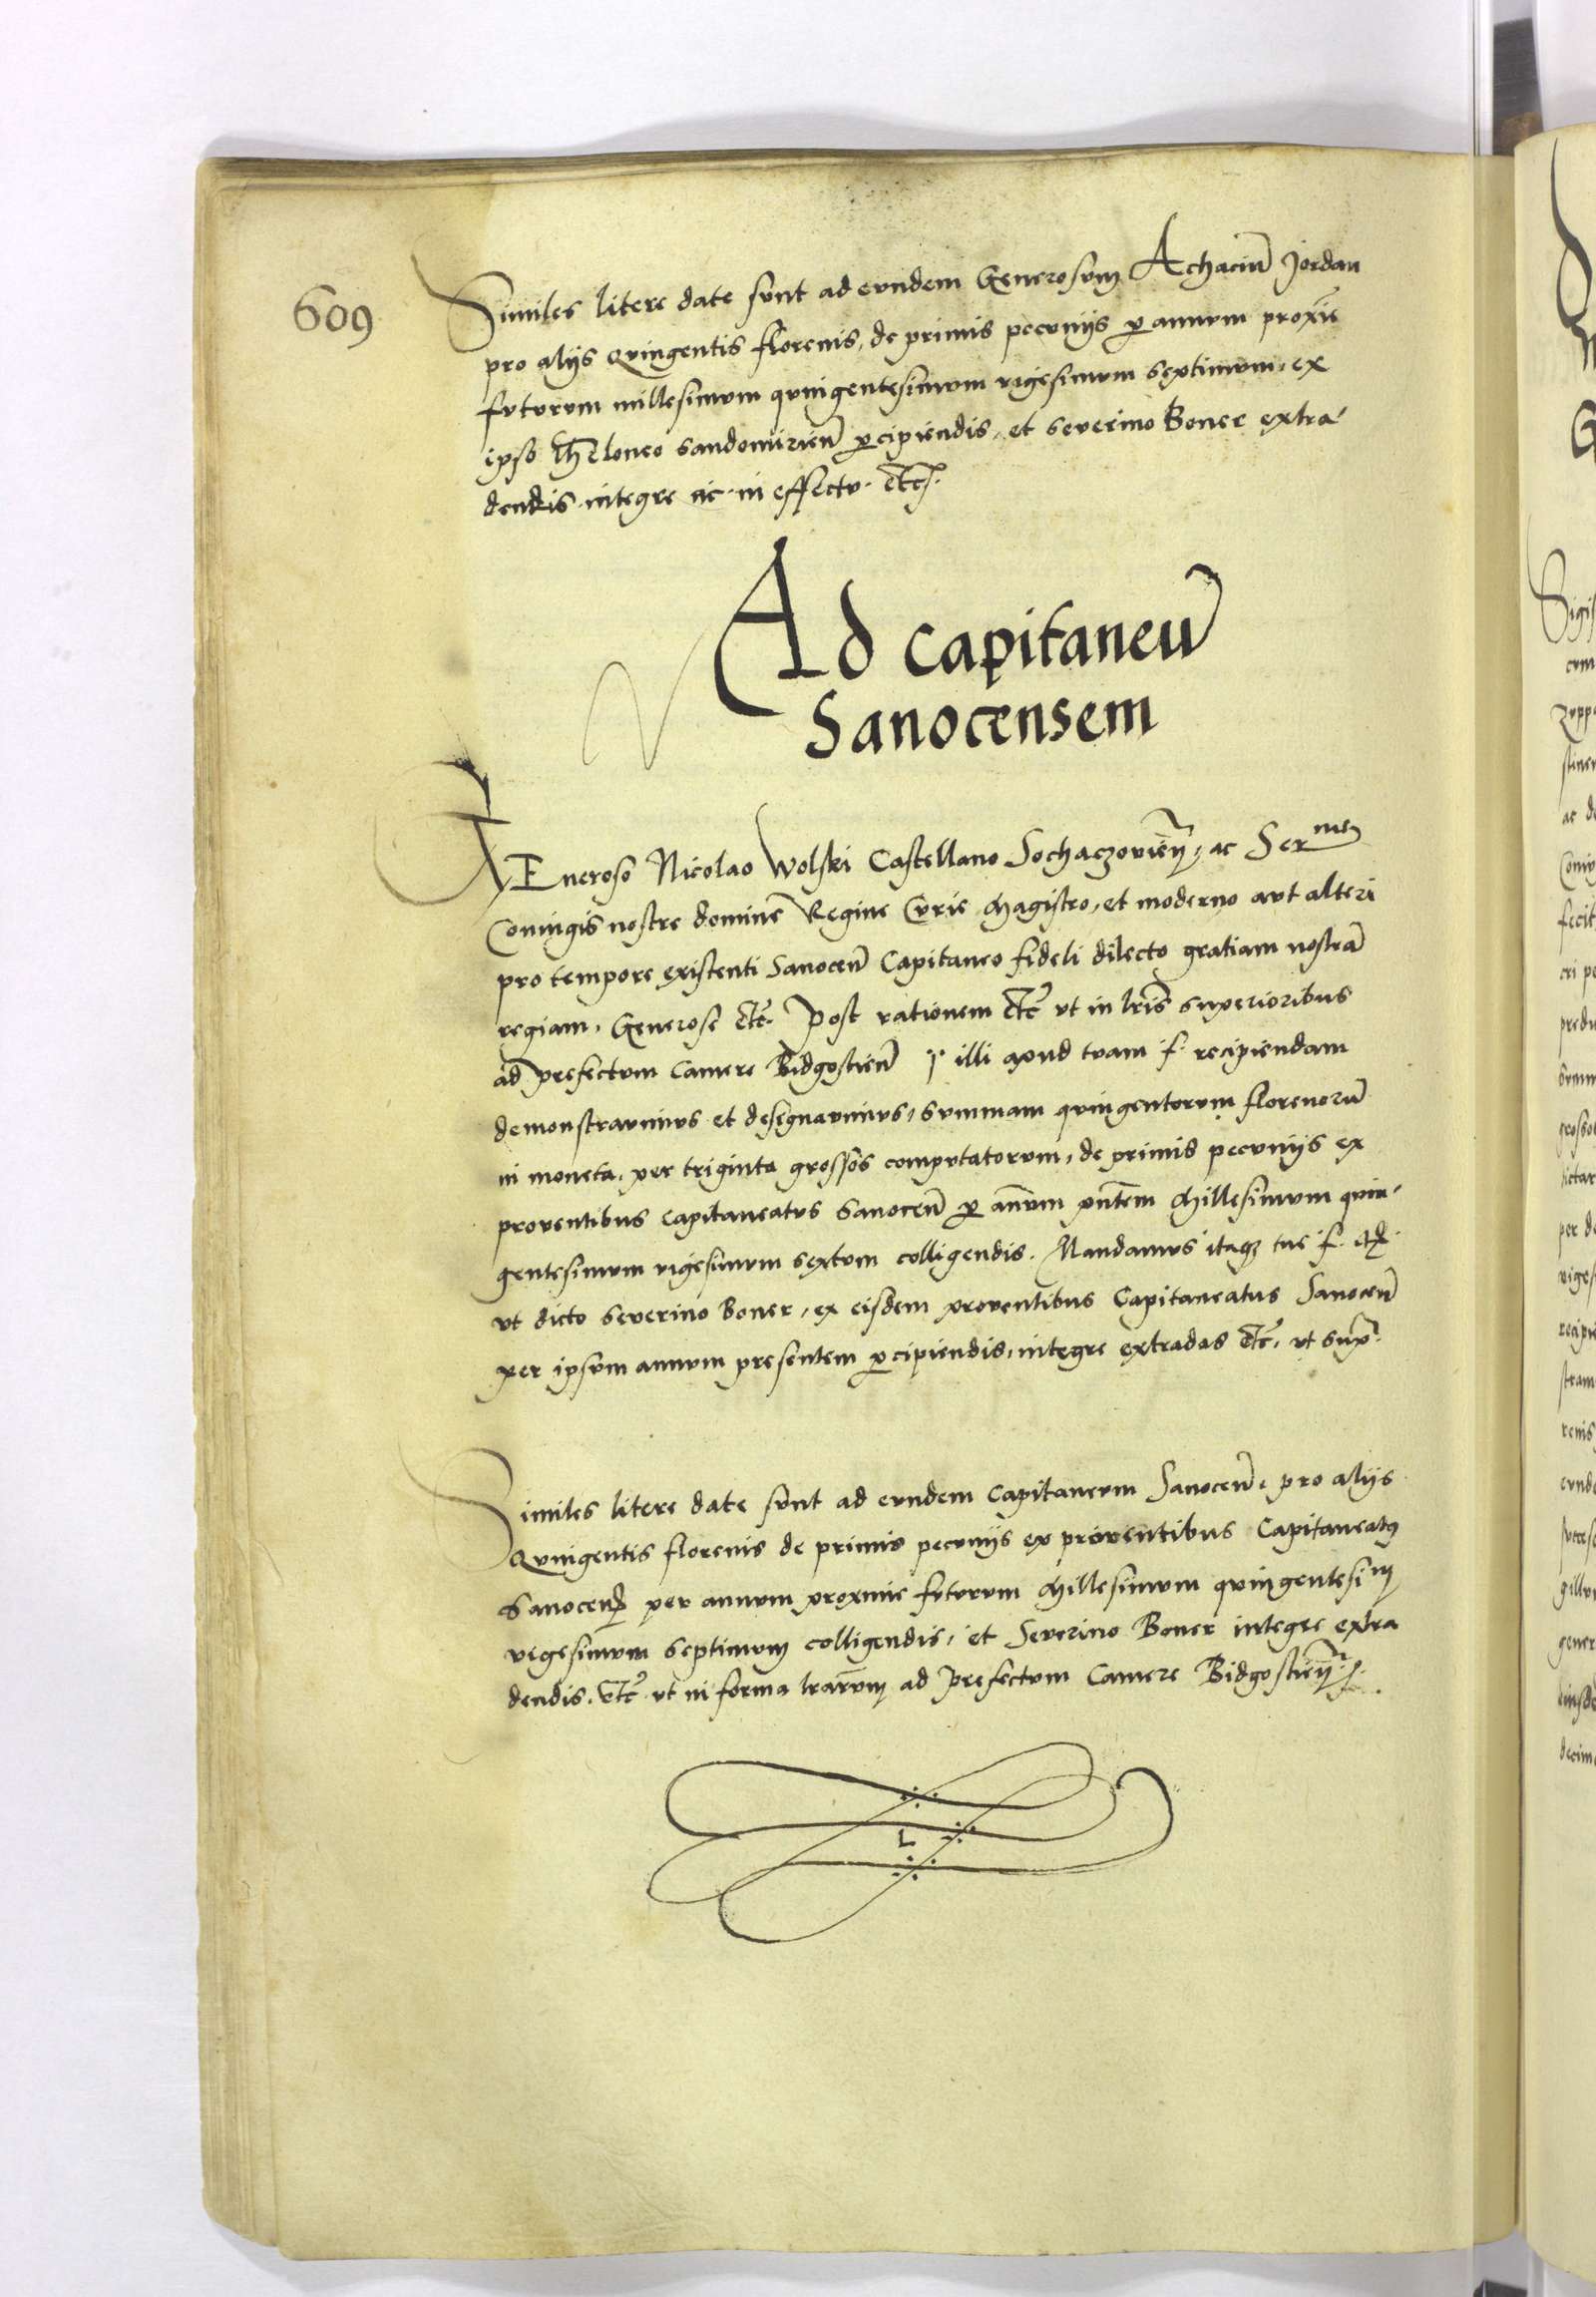 609
Similes litere date sunt ad eundem Generosum Achaciu Jordan
pro alijs Quingentis florenis, de primis pecunijs p annum proxie
futurum millesimum quingentesimum vigesimum septimum, ex
ipso theloneo Sandomirien pcipiendis, et Severino Boner extra-
dendis integre ac in effectu. etc.
Ad Capitaneu
Sanocensem
GEneroso Nicolao Wolski Castellano Sochaczovien, ac Serme
Coniugis nostre domine Regine Curie Magistro, et moderno aut alteri
pro tempore existenti Sanocen Capitaneo fideli dilecto gratiam nostra
regiam. Generose etc. Post rationem etc ut in lris superioribus
ad prefectum Camere Bidgostien illi apud tuam f. recipiendam
demonstravimus et designavimus, summam quingentorum florenoru
in moneta, per triginta grossos computatorum, de primis pecunijs ex
proventibus Capitaneatus Sanocen p annum pntem Millesimum quin-
gentesimum vigesimum sextum colligendis. Mandamus itaq tue f.
ut dicto Severino Boner, ex eisdem proventibus Capitaneatus Sanocen
per ipsum annum presentem pcipiendis, integre extradas etc. ut supra.
Similes litere date sunt ad eundem Capitaneum Sanocen, pro alijs
Quingentis florenis de primis pecunijs ex proventibus Capitaneatus
Sanocen per annum proxime futurum Millesimum quingentesim
vigesimum septimum colligendis, et Severino Boner integre extra
dendis. etc ut in forma lrarum ad prefectum Camere Bidgostien.